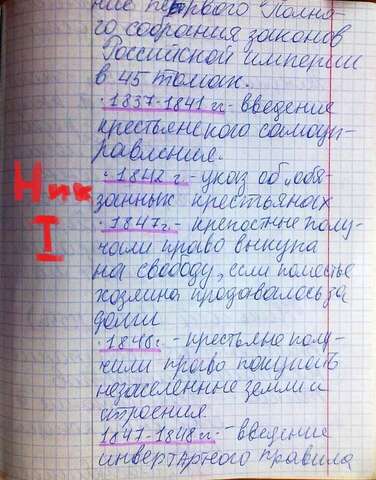 ние первого Полно-
го собрания законов
Российской империи
в 45 томах.
· 1837-1841 гг - введение
крестьянского самоуп-
равления.
· 1842 г. - указ об „обя-
занных крестьянах
Ник
I
· 1847г. - крепостные полу-
чили право выкупа
на свободу, если поместье
хозяина продавалось за
долги
· 1848г. - крестьяне полу-
чили право покупать
незаселенные земли и
строения
1847-1848гг. - введение
инвертарного правила